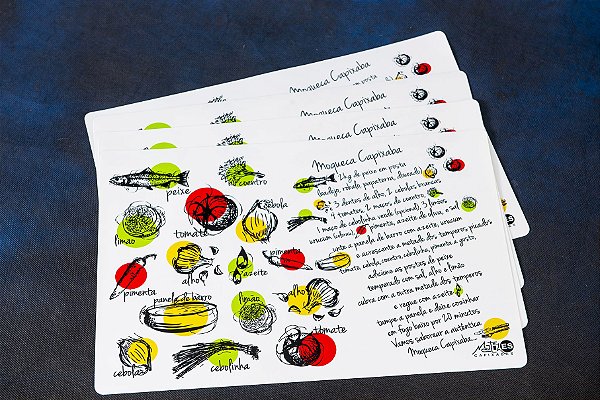 Moqueca Capixaba
Moqueca Capixaba
Moqueca Capixaba
Moqueca Capixaba
peixe
coentro
cebola
limão
tomate
pimenta
alho
azeite
pimenta
panela de barro
limão
alho
tomate
cebolas
cebolinha
kg de peixe em posta
dentes de alho, 2 cebolas brancas
4 tomates, 2 maços de coentro
1 maço de cebolinha verde 3 limões
pimenta, azeite de oliva, e sal
unte a panela de barro com azeite, urucum
e acrescente a metade dos temperos picados
tomate, cebola, coentro, cebolinha, pimenta a gosto,
adicione as postas de peixe
temperado com sal, alho e limão
cubra com a outra metade dos temperos
e regue com o azeite
tampe a panela e deixe cozinhar
em fogo baixo por 20 minutos
Vamos saborear a autêntica
Moqueca Capixaba...
ES
CAPIXABAS